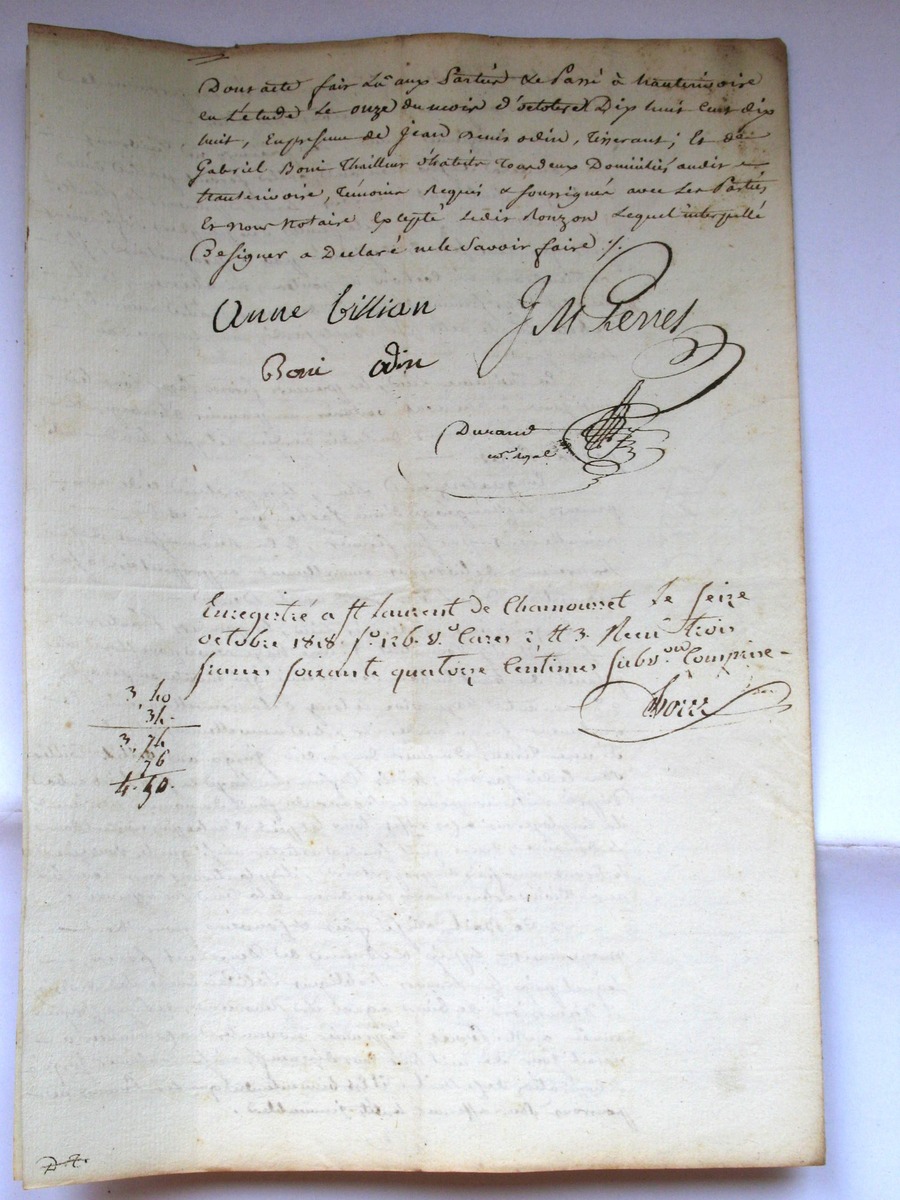 Dont acte fait Lu aux Parties & Passé à hauterivoire
en L'étude Le onze du mois d'octobre Dix huit cent dix
huit, En presence de Jean Denis odin, Tisserant; Et de
Gabriel Boni Thailleur d'habits Tous deux Domiciliés audit
hauterivoire, Témoins Requis & soussignés avec Les Parties
Et nous Notaire Excepté Ledit Ronzon Lequel interpellé
De signer a Declaré ne le Savoir faire ./.
Anne Gillian
J M Perret
Boni odin
Durand
no.re royal
Enregistré a St Laurent de Chamousset Le Seize
octobre 1818 f.o 126. v.o Cases 2 et 3. Recu trois
francs soixante quatorze Centimes Subv.on Comprise -
3 40
34.
3. 74
76
4. 50.
D.R.